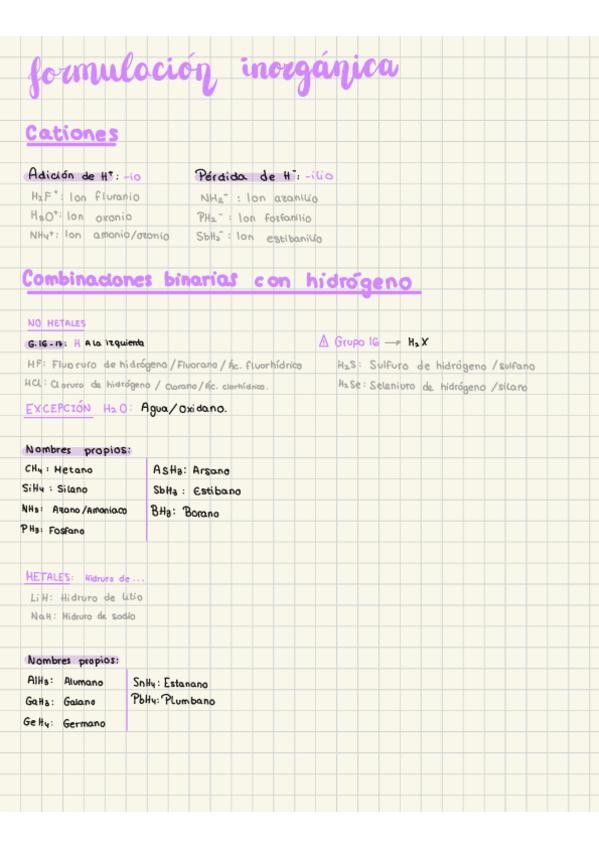 formulación inorgánica
Cationes
Adición de H⁺: -io
H₂F⁺: Ion fluranio
H₃O⁺: Ion oxonio
NH₄⁺: Ion amonio/azonio
Pérdida de H⁻: -ilio
NH₂⁻: Ion azanilio
PH₂⁻: Ion fosfanilio
SbH₂⁻: Ion estibanilio
Combinaciones binarias con hidrógeno
NO METALES
G.16-17: H A la izquierda
HF: Fluoruro de hidrógeno/Fluorano/Ác. fluorhídrico
HCl: Cloruro de hidrógeno / Clorano/Ác. clorhídrico.
⚠ Grupo 16 → H₂X
H₂S: Sulfuro de hidrógeno /sulfano
H₂Se: Seleniuro de hidrógeno /silano
EXCEPCIÓN H₂O: Agua/Oxidano.
Nombres propios:
CH₄: Metano
SiH₄: Silano
NH₃: Azano/Amoniaco
PH₃: Fosfano
AsH₃: Arsano
SbH₃: Estibano
BH₃: Borano
METALES: Hidruro de...
LiH: Hidruro de litio
NaH: Hidruro de sodio
Nombres propios:
AlH₃: Alumano
GaH₃: Galano
GeH₄: Germano
SnH₄: Estanano
PbH₄: Plumbano